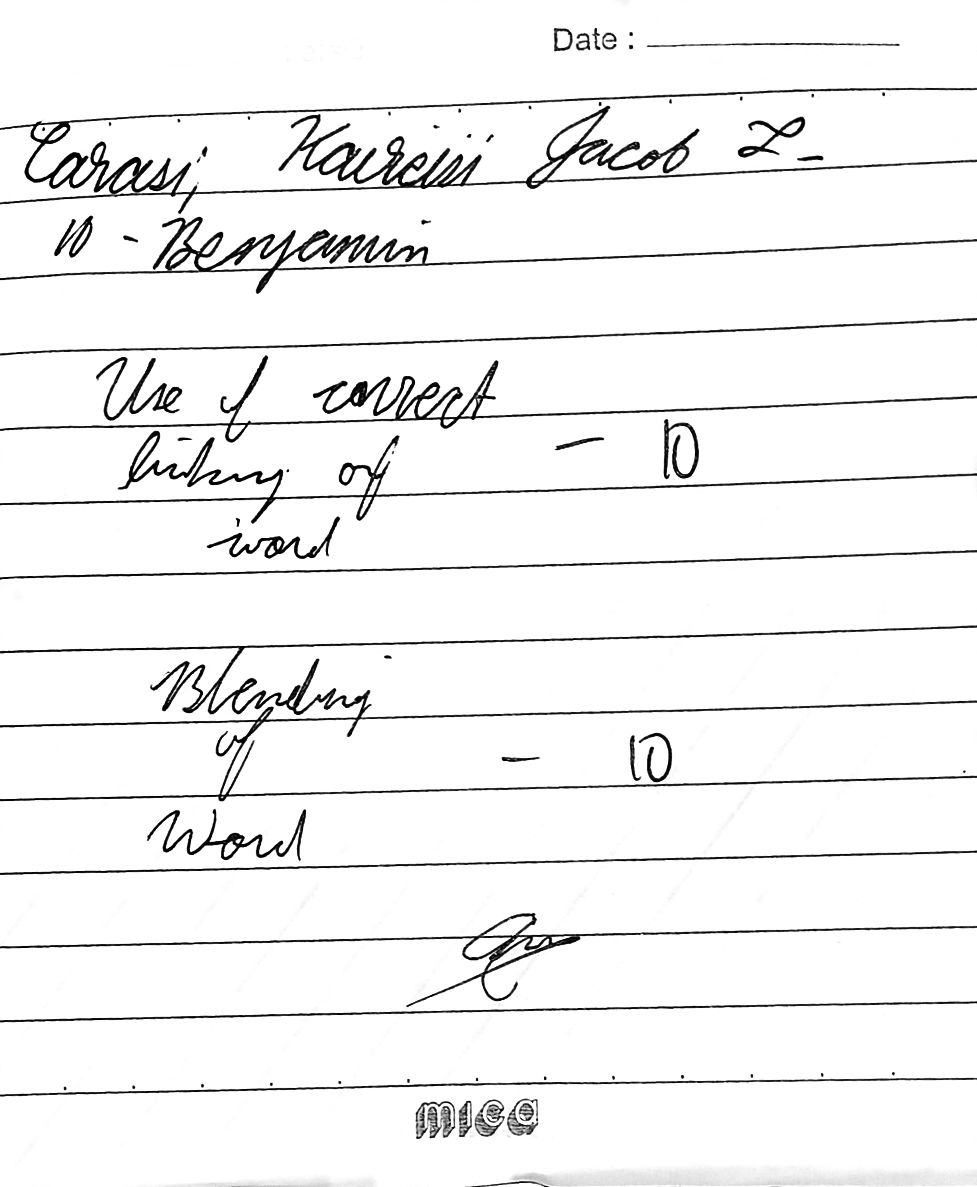 Date :
Carasi, Jacob L.
10 - Benjamin
Use of correct
linking of - 10
word
Blending
of - 10
Word
mica